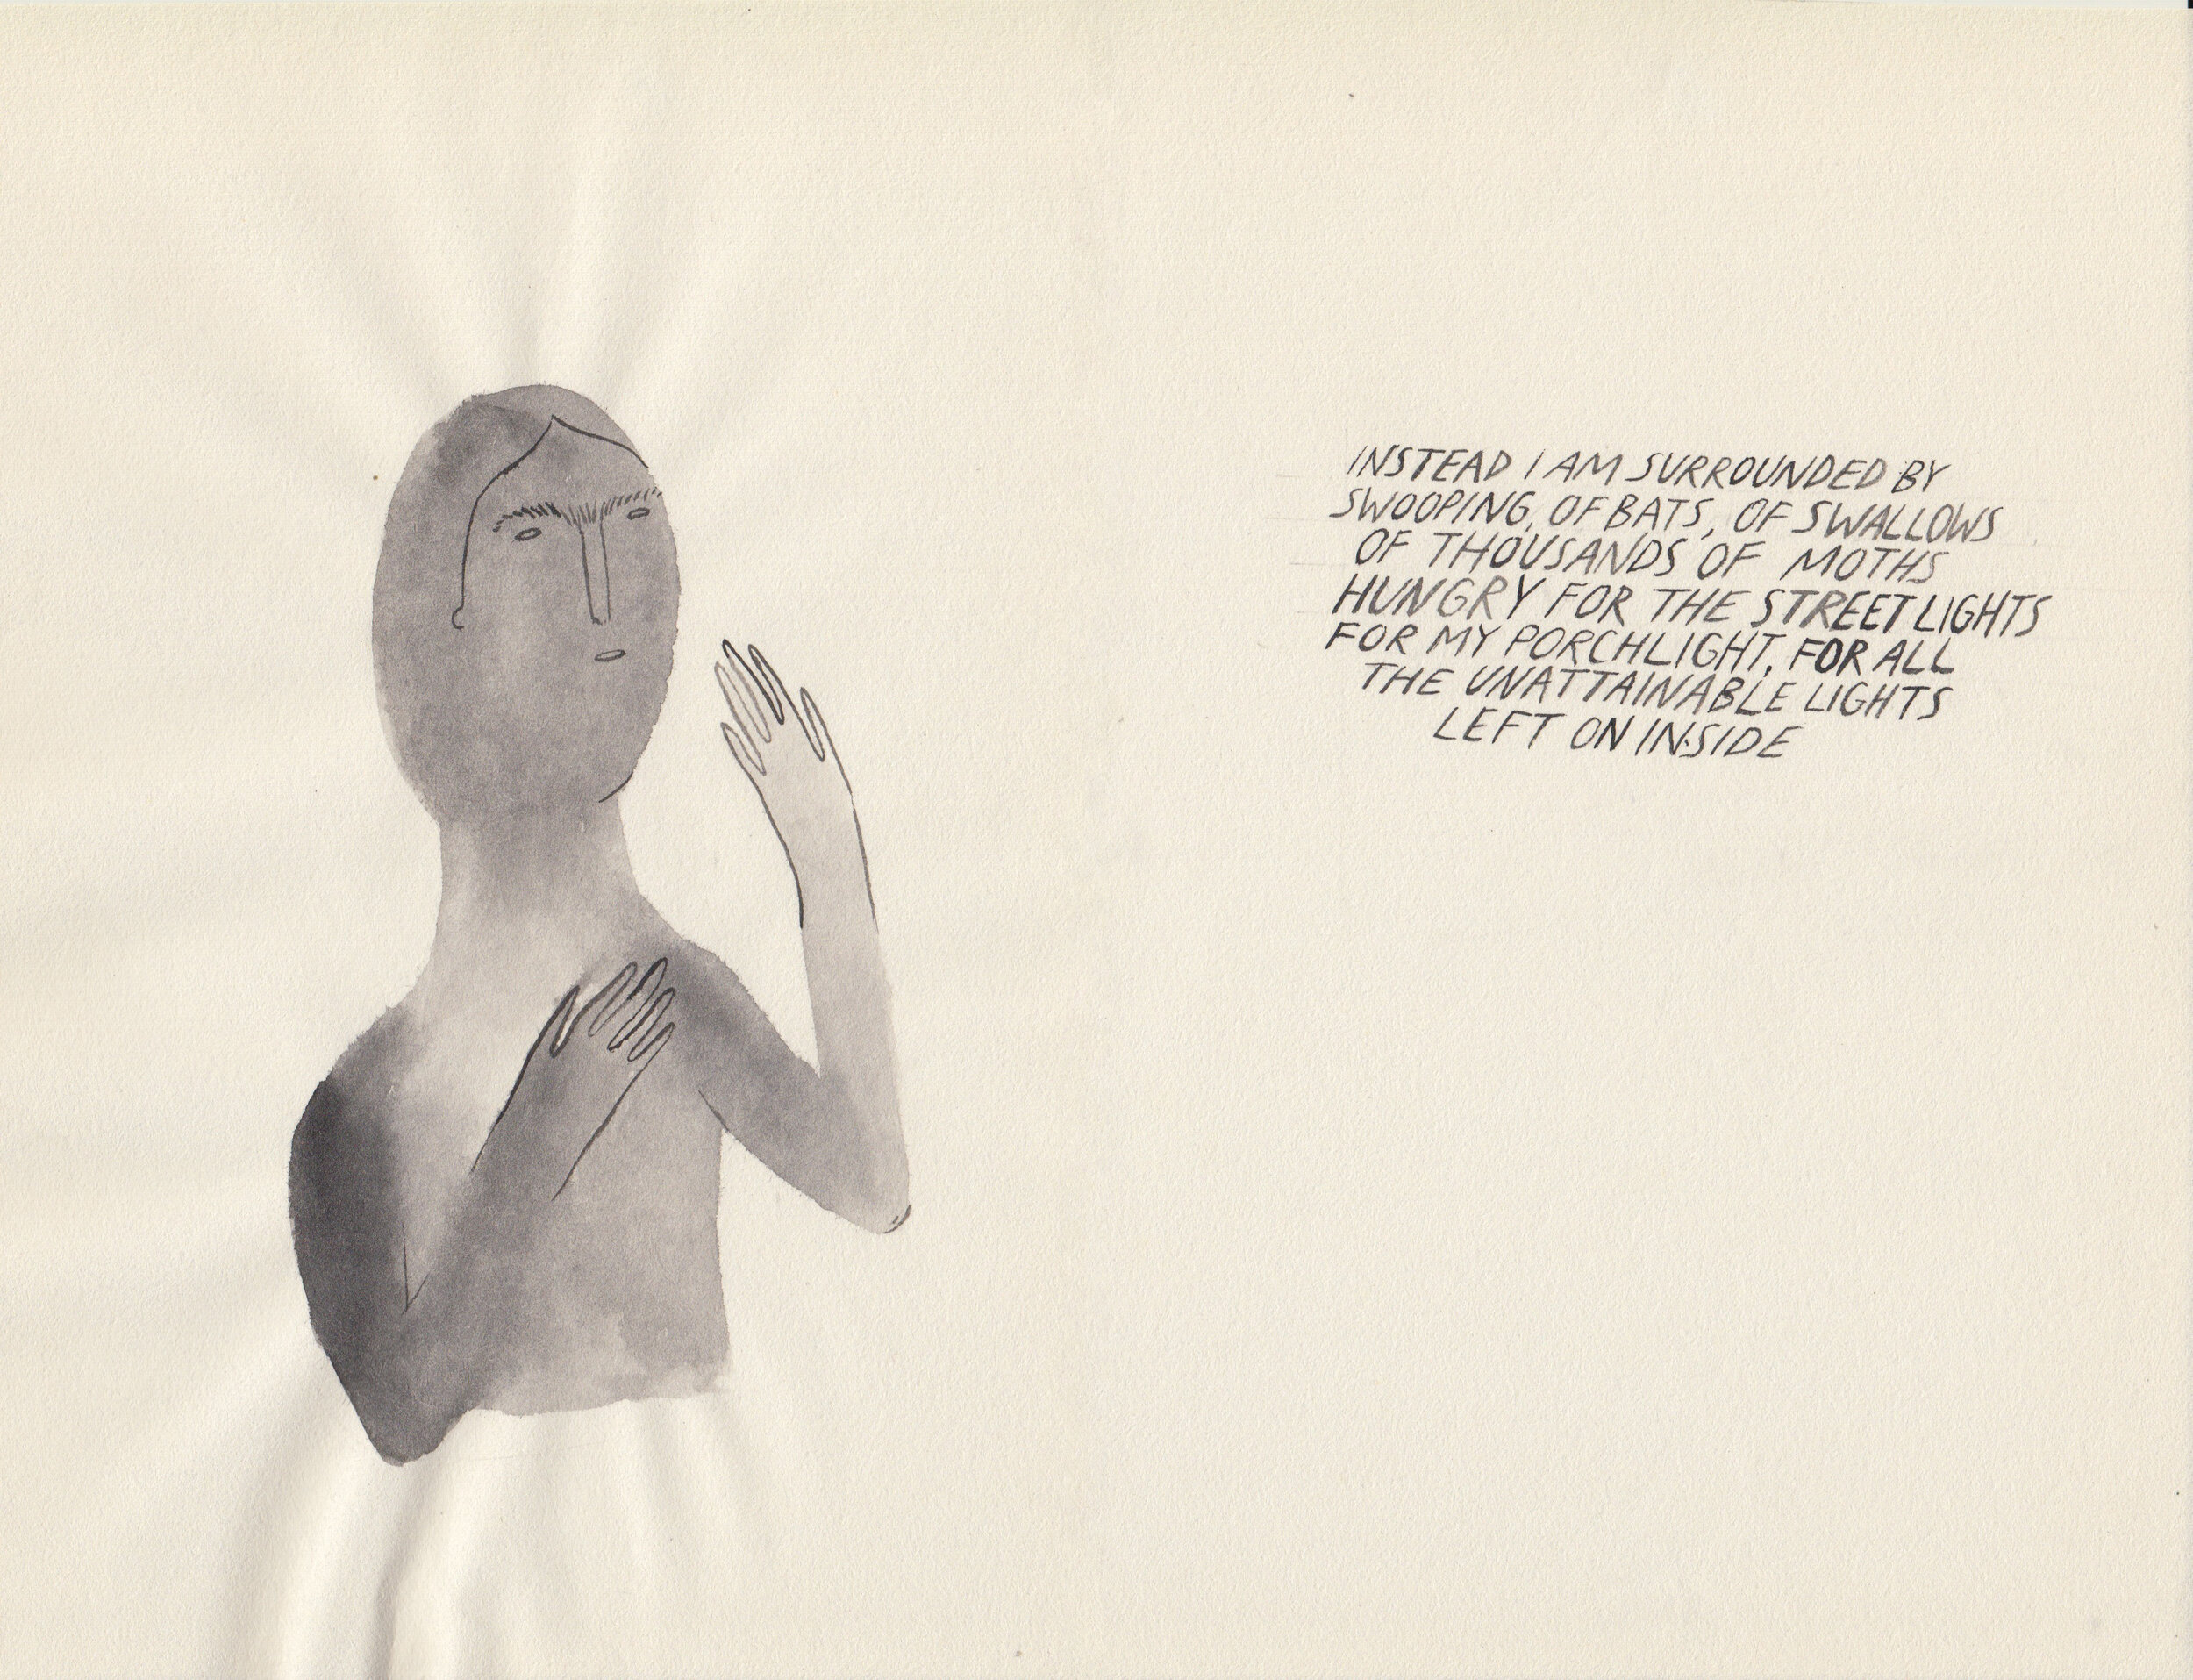 INSTEAD I AM SURROUNDED BY
SWOOPING, OF BATS, OF SWALLOWS
OF THOUSANDS OF MOTHS
HUNGRY FOR THE STREETLIGHTS
FOR MY PORCHLIGHT, FOR ALL
THE UNATTAINABLE LIGHTS
LEFT ON INSIDE